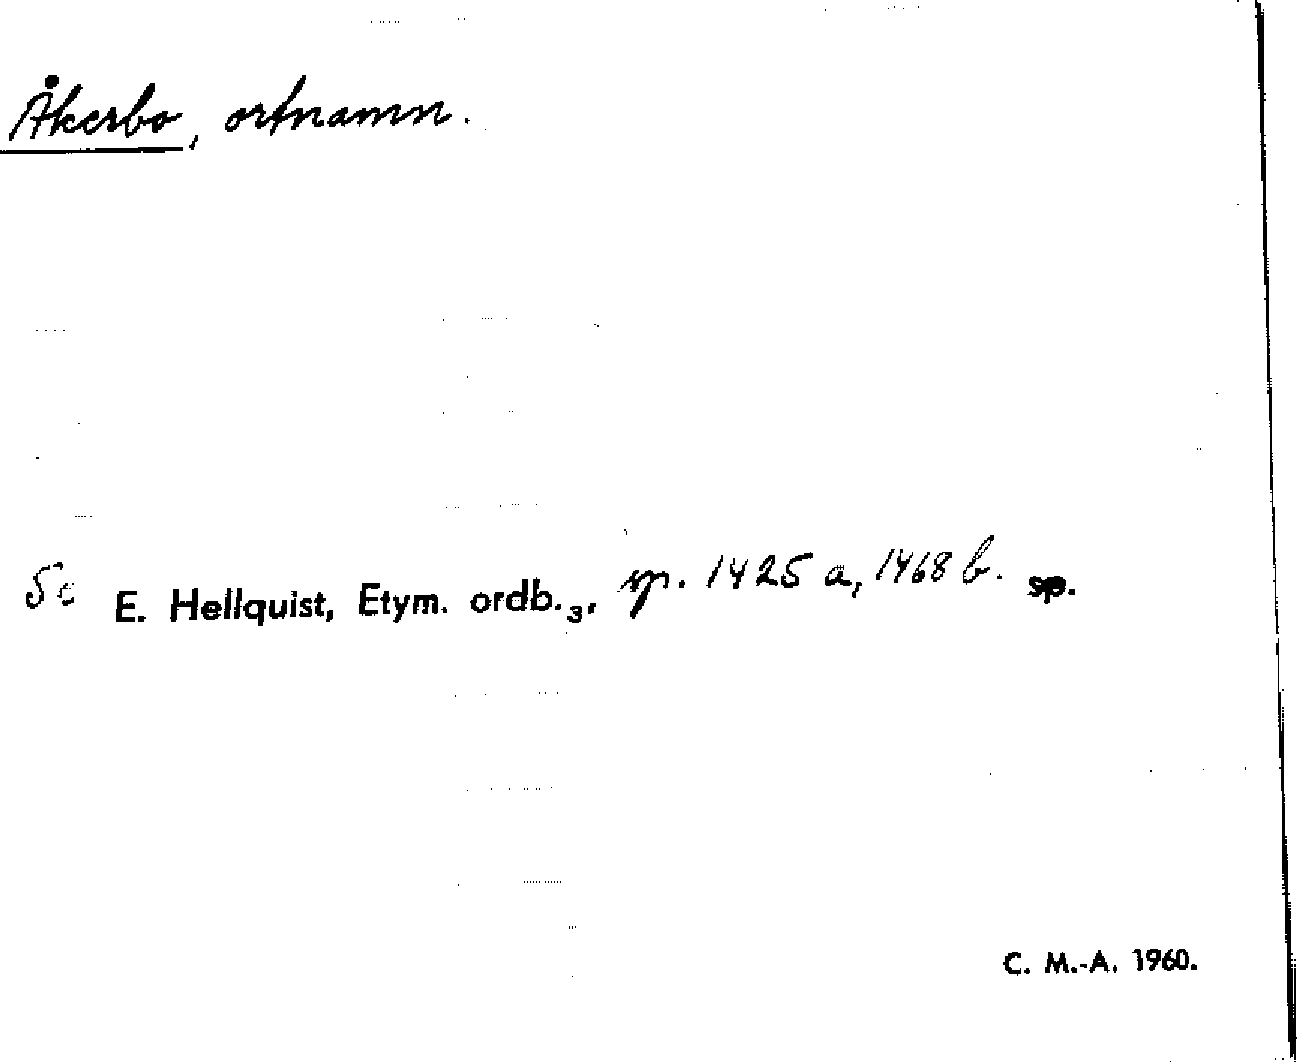 Åkerbo, ortnamn.
Se E. Hellquist, Etym. ordb.₃, sp. 1425 a, 1468 b. sp.
C. M.-A. 1960.